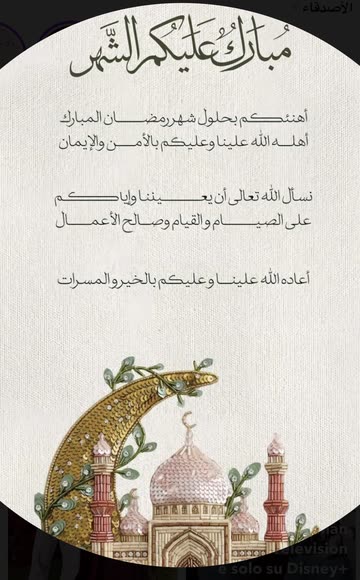 الأصدقاء
مُبَارَكٌ عَلَيْكُم الشَّهر
أهنئكم بحلول شهر رمضان المبارك
أهله الله علينا وعليكم بالأمن والإيمان
نسأل الله تعالى أن يعيننا وإياكم
على الصيام والقيام وصالح الأعمال
أعاده الله علينا وعليكم بالخير والمسرات
elevision
e solo su Disney+